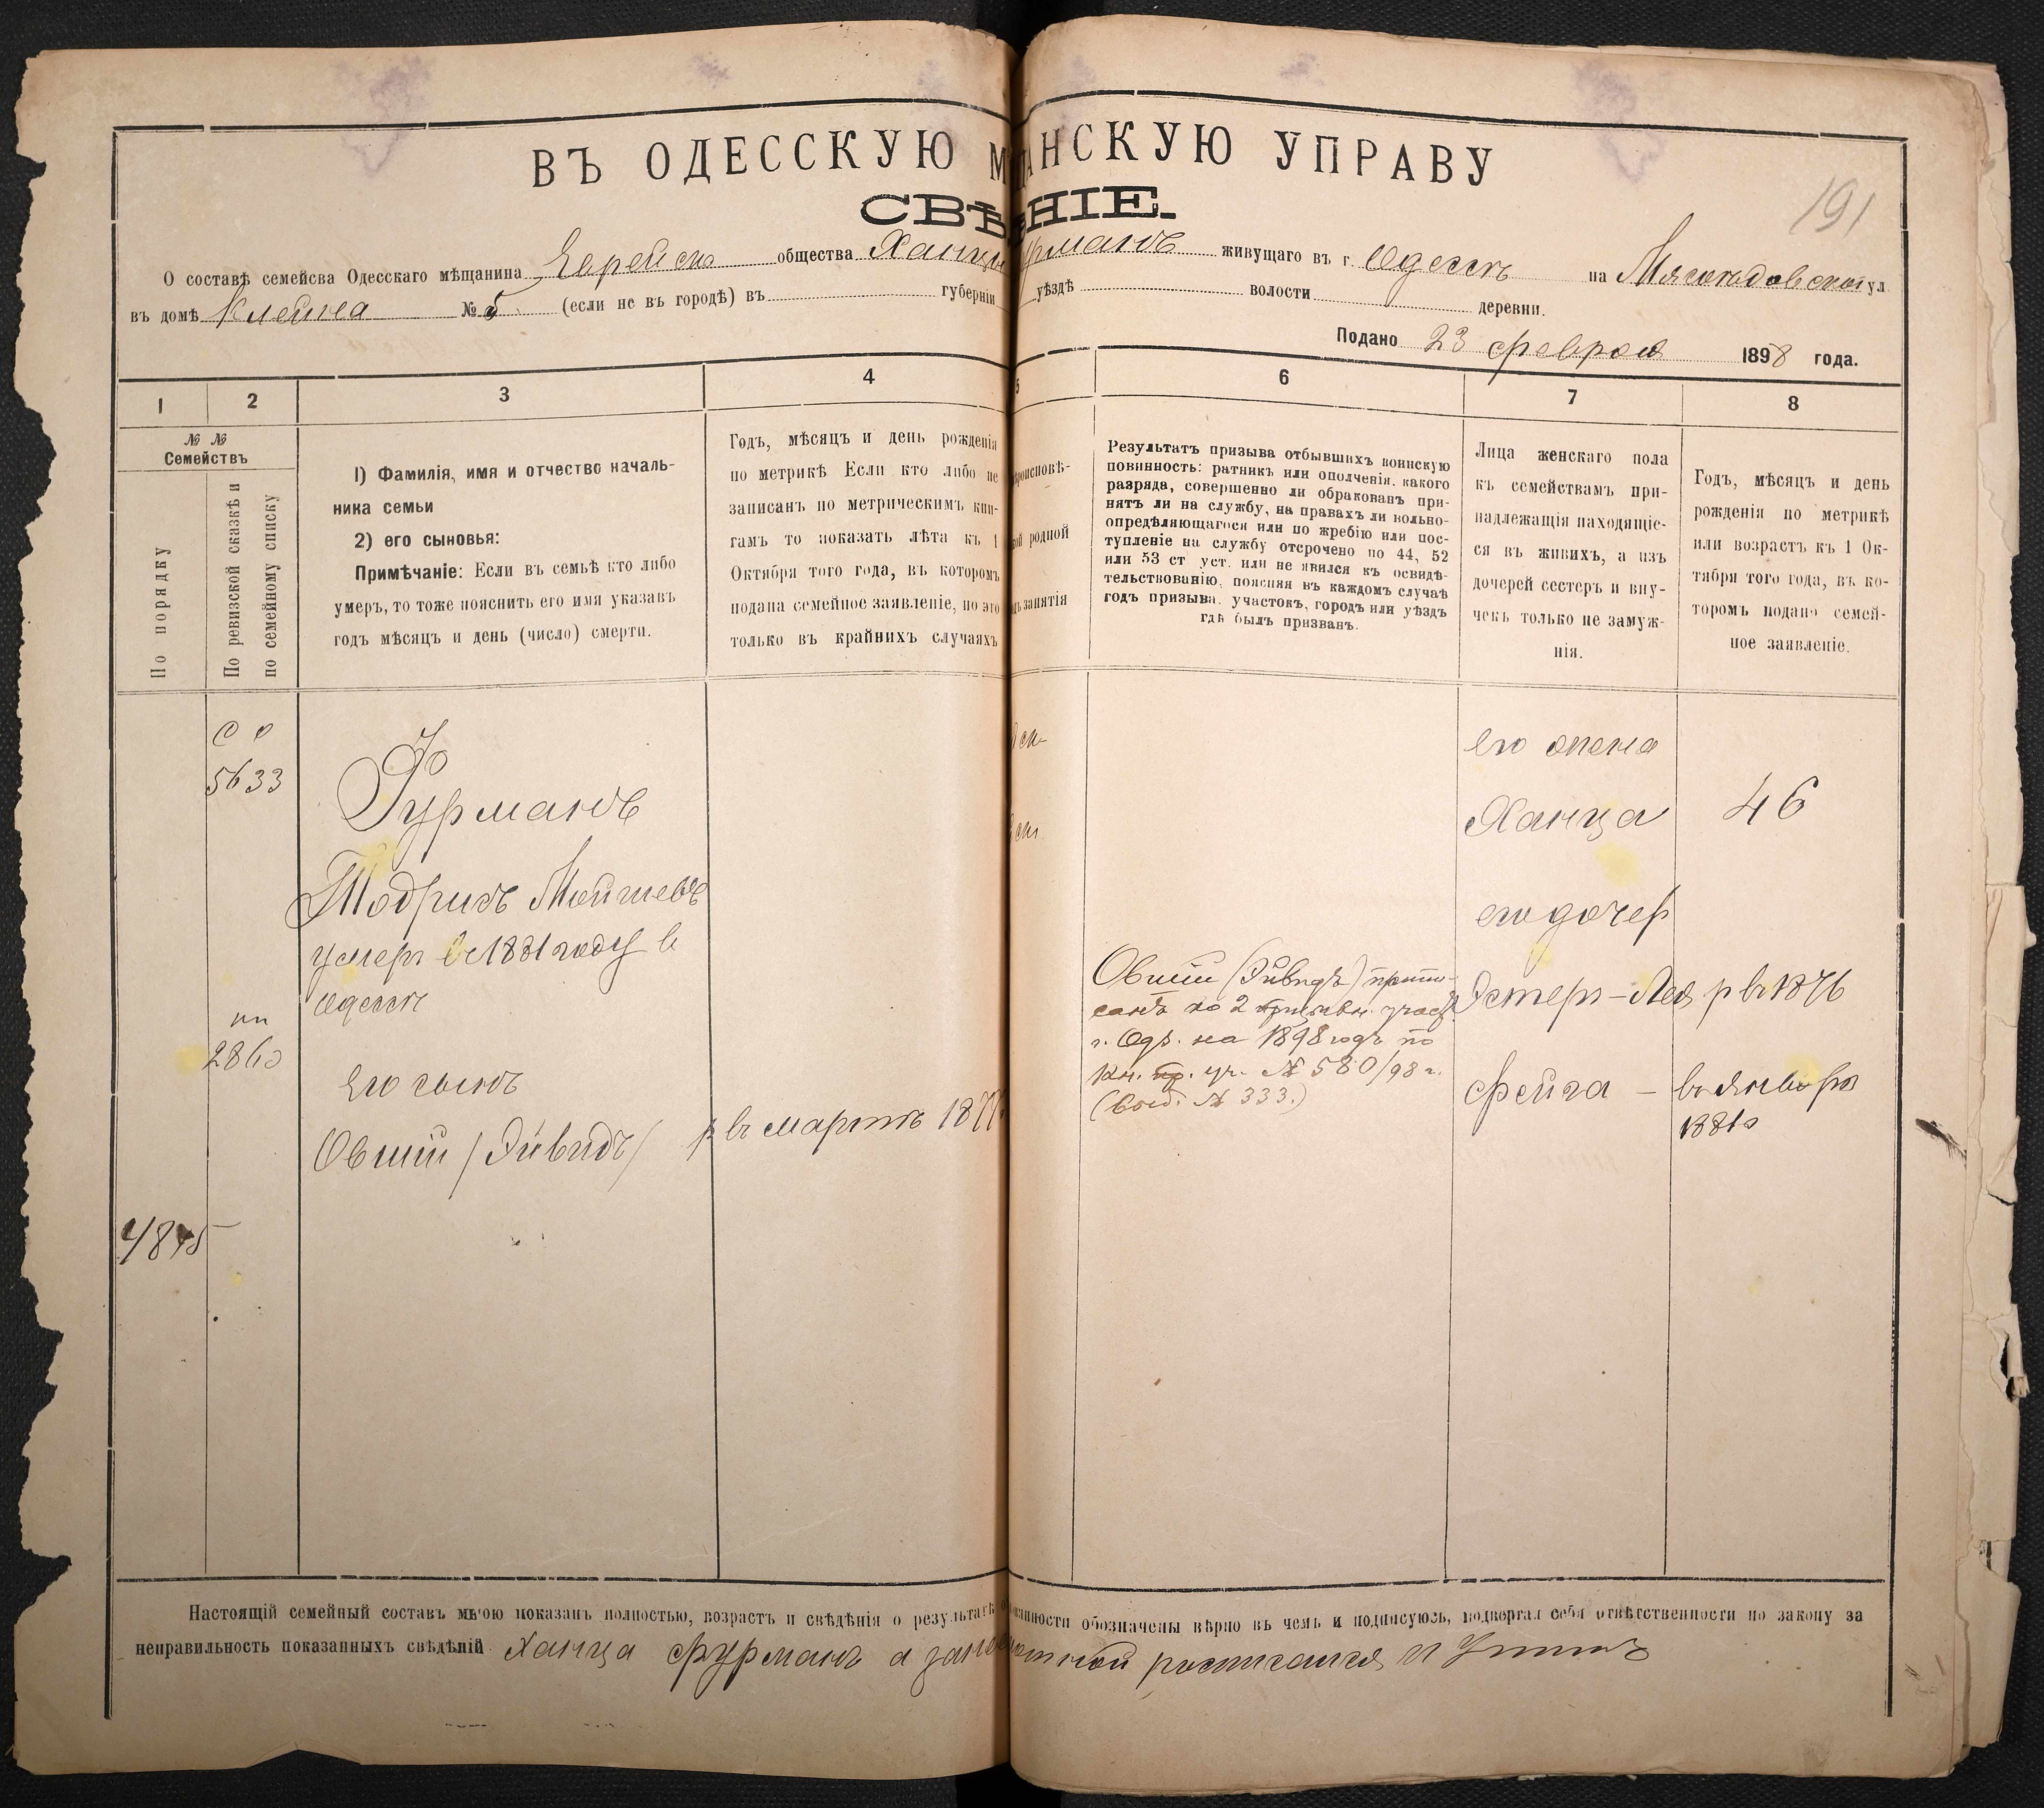 191
ВЪ ОДЕССКУЮ М АНСКУЮ УПРАВУ
СВѢ НІЕ.
О составѣ семейсва Одесскаго мѣщанина Еврейско общества Ханцы Фурманъ живущаго въ г. Одессѣ на Мясоѣдовской ул
въ домѣ Клейна № 5 (если не въ городѣ) въ губерніи уѣздѣ волости деревни.
Подано 23 февраля 1898 года.
1 2 3 4 5 6 7 8
№ №
Семействъ
По порядку
По ревизской сказкѣ и
по семейному списку
1) Фамилія, имя и отчество началь-
ника семьи
2) его сыновья:
Примѣчаніе: Если въ семьѣ кто либо
умеръ, то тоже пояснить его имя указавъ
годъ мѣсяцъ и день (число) смерти.
Годъ, мѣсяцъ и день рожденія
по метрикѣ Если кто либо не
записанъ по метрическимъ кни-
гамъ то показать лѣта къ 1
Октября того года, въ которомъ
подана семейное заявленіе, но это
только въ крайнихъ случаяхъ
роисповѣ-
родной
занятія
Результатъ призыва отбывшихъ воинскую
повинность: ратникъ или ополченія. какого
разряда, совершенно ли обракованъ при-
нятъ ли на службу, на правахъ ли вольно-
опредѣляющагося или по жребію или пос-
тупленіе на службу отсрочено по 44, 52
или 53 ст уст. или не явился къ освидѣ-
тельствованію, поясняя въ каждомъ случаѣ
годъ призыва. участокъ, городъ или уѣздъ
гдѣ былъ призванъ.
Лица женскаго пола
къ семействамъ при-
надлежащія находящіе-
ся въ живихъ, а изъ
дочерей сестеръ и вну-
чекъ только не замуж-
нія.
Годъ, мѣсяцъ и день
рожденія по метрикѣ
или возрастъ къ 1 Ок-
тября того года, въ ко-
торомъ подано семей-
ное заявленіе.
5633
Фурманъ
Тодрисъ Мойшевъ
умеръ въ 1881 году в
Одессѣ
2860
Его сынъ
Овшій /Эйвидъ/
р въ мартѣ 1877
4845
Овшій (Эйвидъ) припи-
санъ ко 2 призывн. участ.
г. Одс. на 1898 годъ по
кн. пр. уч. № 580/98 г.
№ 333.)
его жена
Ханца 46
его дочер
Эстеръ-Лея р въ 1876
Фейга - въ Январѣ
1881
Настоящій семейный составъ мною показанъ полностью, возрастъ и свѣдѣнія о результатѣ о инности обозначены вѣрно въ чемъ и подписуюсь, подвергая себя отвѣтственности по закону за
неправильность показанныхъ свѣдѣній Ханца Фурманъ а за неграмотной росписался И